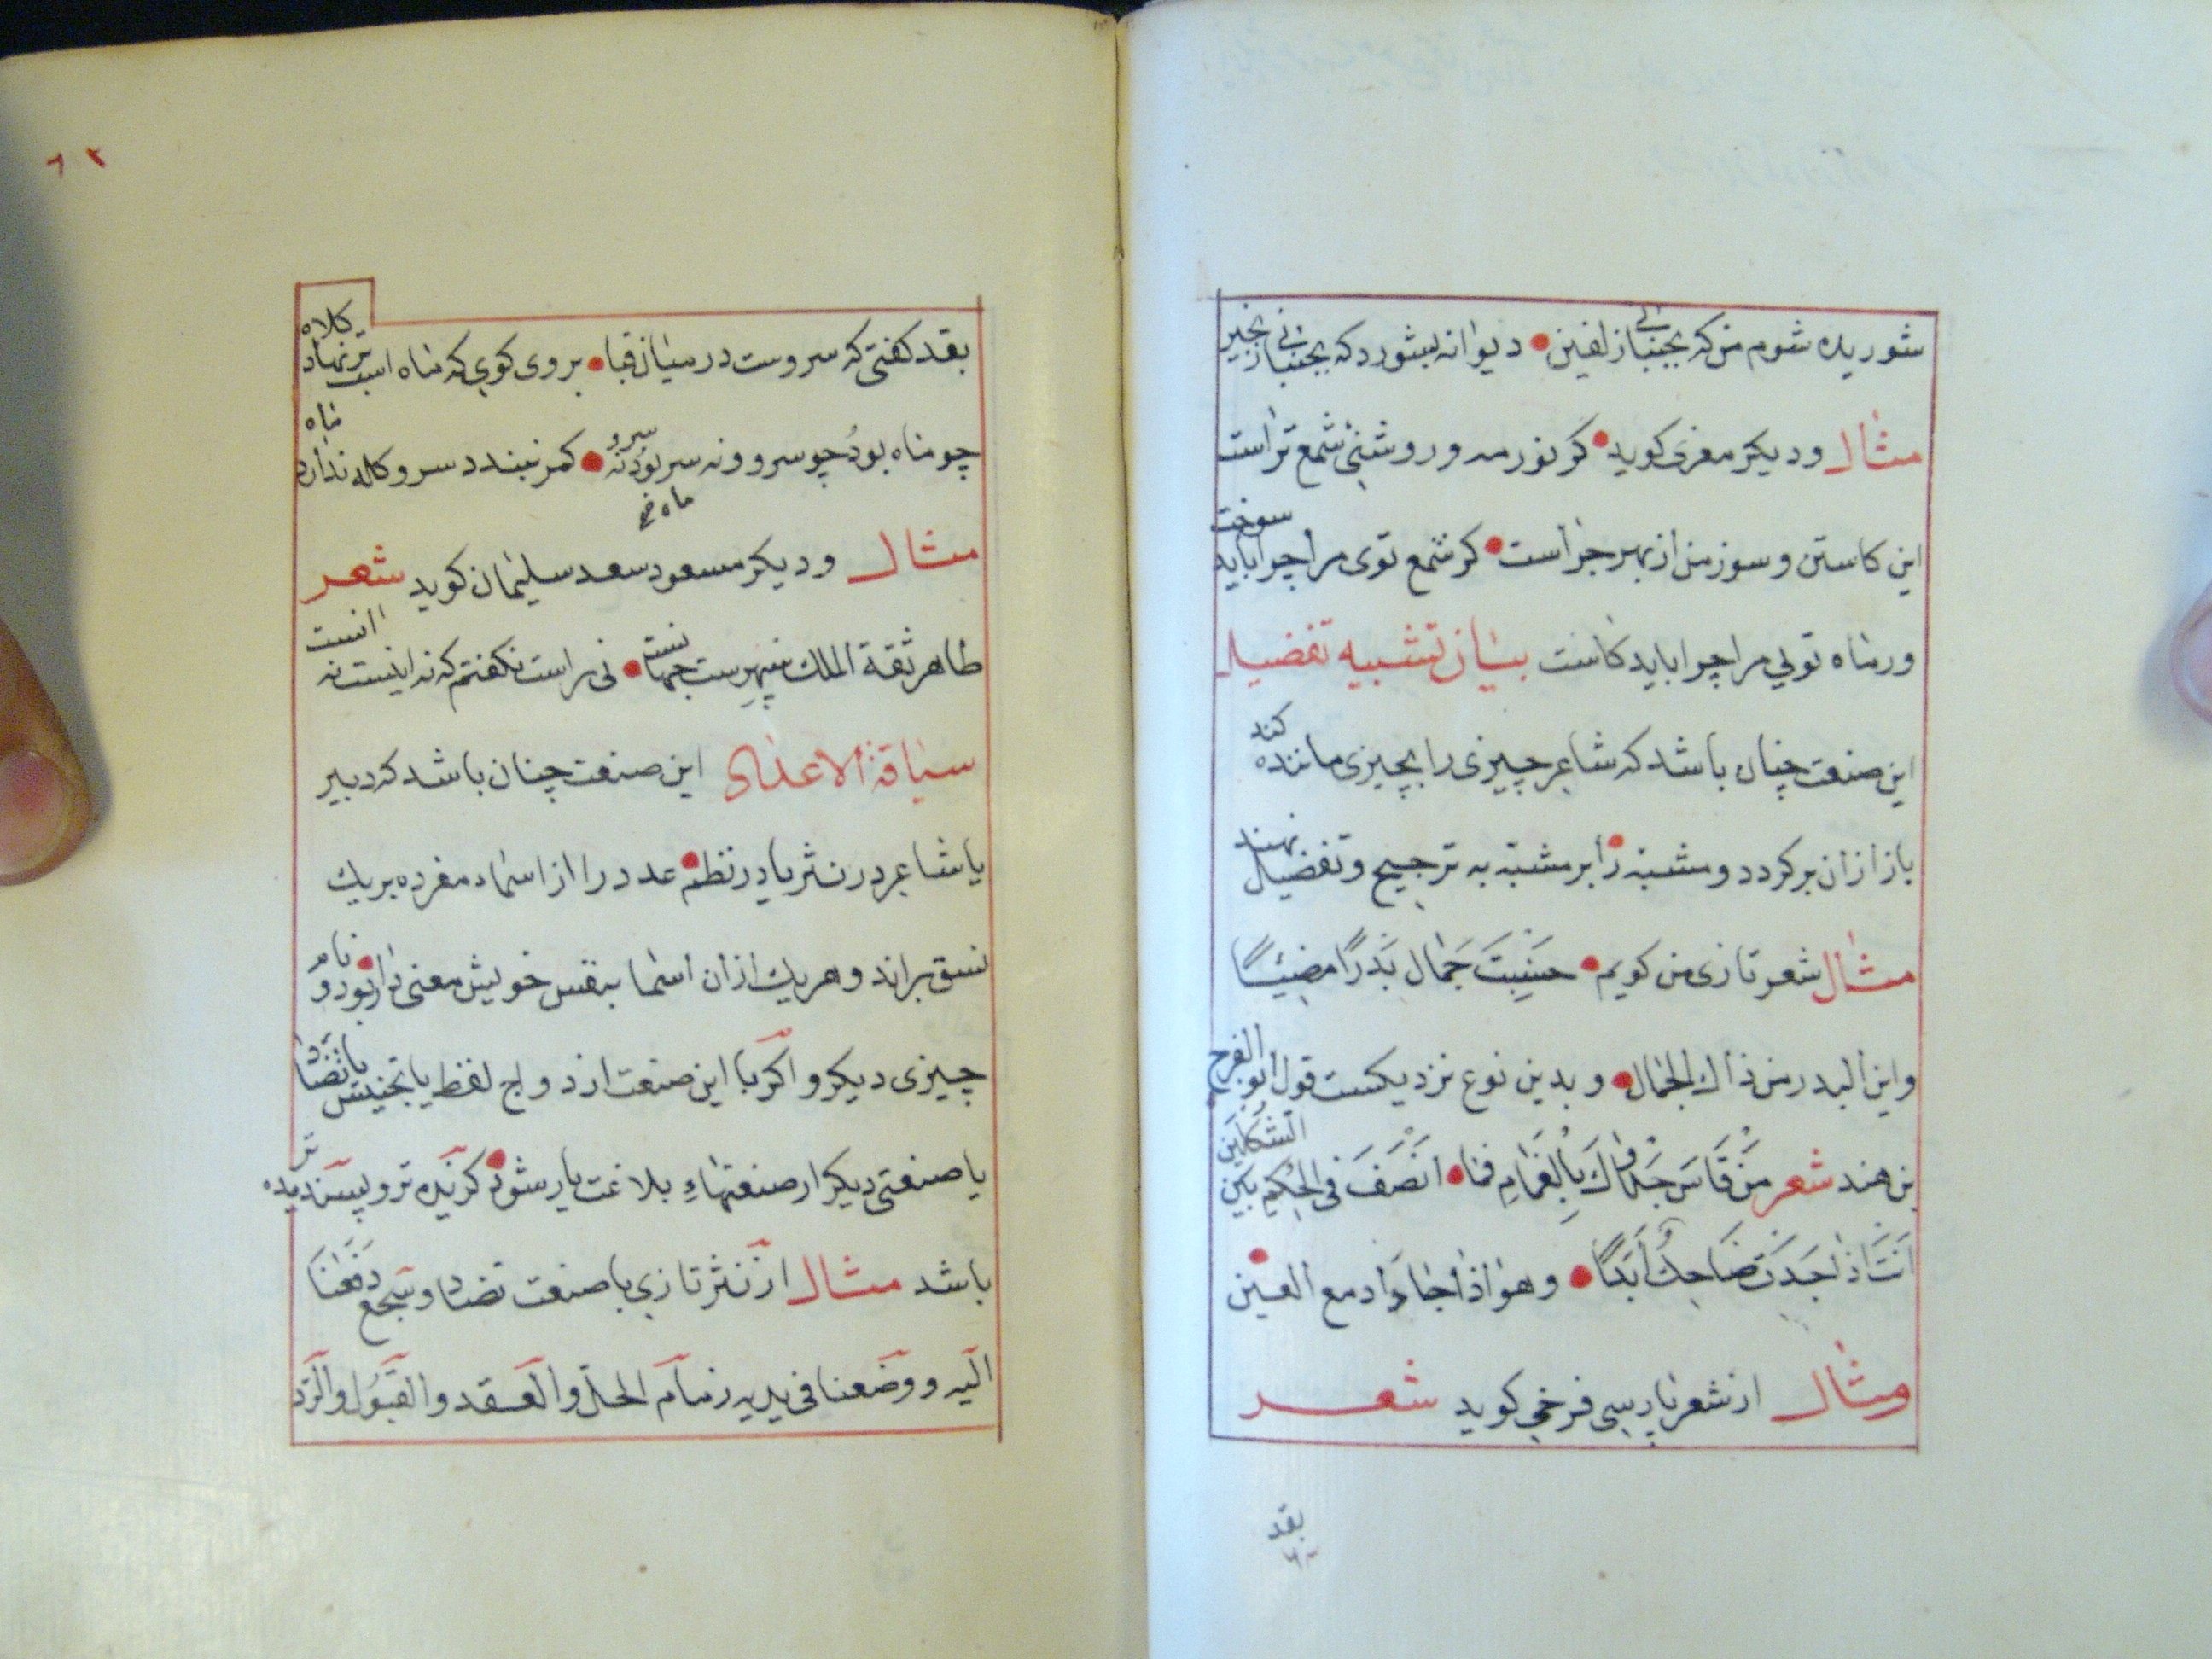 شوریده شوم من که بجنبانی زلفین • دیوانه بشورد که بجنبانی زنجیر
مثال ودیکر مغزی کوید • کر نور مه و روشنی شمع تراست
این کاستن و سوز من از بهر چراست • کر شمع توی مرا چرا باید سوخت
ور ماه تویی مرا چرا باید کاست بیان تشبیه تفضیل
این صنعت چنان باشد که شاعر چیزی را بچیزی ماننده کند
باز ازان برکردد و مشبه را بر مشبه به ترجیح و تفضیل نهند
مثال شعر تازی من کویم • حسبت جمال بدرا مضیئا
واین البدر من ذاك الجمال • وبدین نوع نزدیکست قول ابو الفرج
بن هند شعر من قاس جدواك بالغمام فما • انصف فی الحکم بین الشکلین
انت اذا جدت ضاحك ابدا • وهو اذا جاد دمع العین
مثال از شعر پارسی فرخی کوید شعر
بقد
٦٢
بقد کفتی که سروست در میان قبا • بروی کویی که ماه است برنهاد کلاه
چو ماه بود چو سرو و نه سرو بود نه ماه • کمر نبندد سرو و کله ندارد ماه
مثال ودیکر مسعود سعد سلیمان کوید شعر
طاهر ثقة الملك سپهرست جهانست • نی راست نکفتم که نه اینست نه انست
سیاقة الاعداد این صنعت چنان باشد که دبیر
یا شاعر در نثر یا در نظم عدد را از اسماء مفرده بریك
نسق براند وهریك ازان اسما بنفس خویش معنی دار بود و نام
چیزی دیکر و اکر با این صنعت ازدواج لفظ یا تجنیس یا تضاد
یا صنعتی دیکر از صنعتهاء بلاغت یار شود کزیده تر و پسندیده تر
باشد مثال از نثر تازی با صنعت تضاد و سجع دفعنا
الیه ووضعنا فی یدیه زمام الحل والعقد والقبول والرد